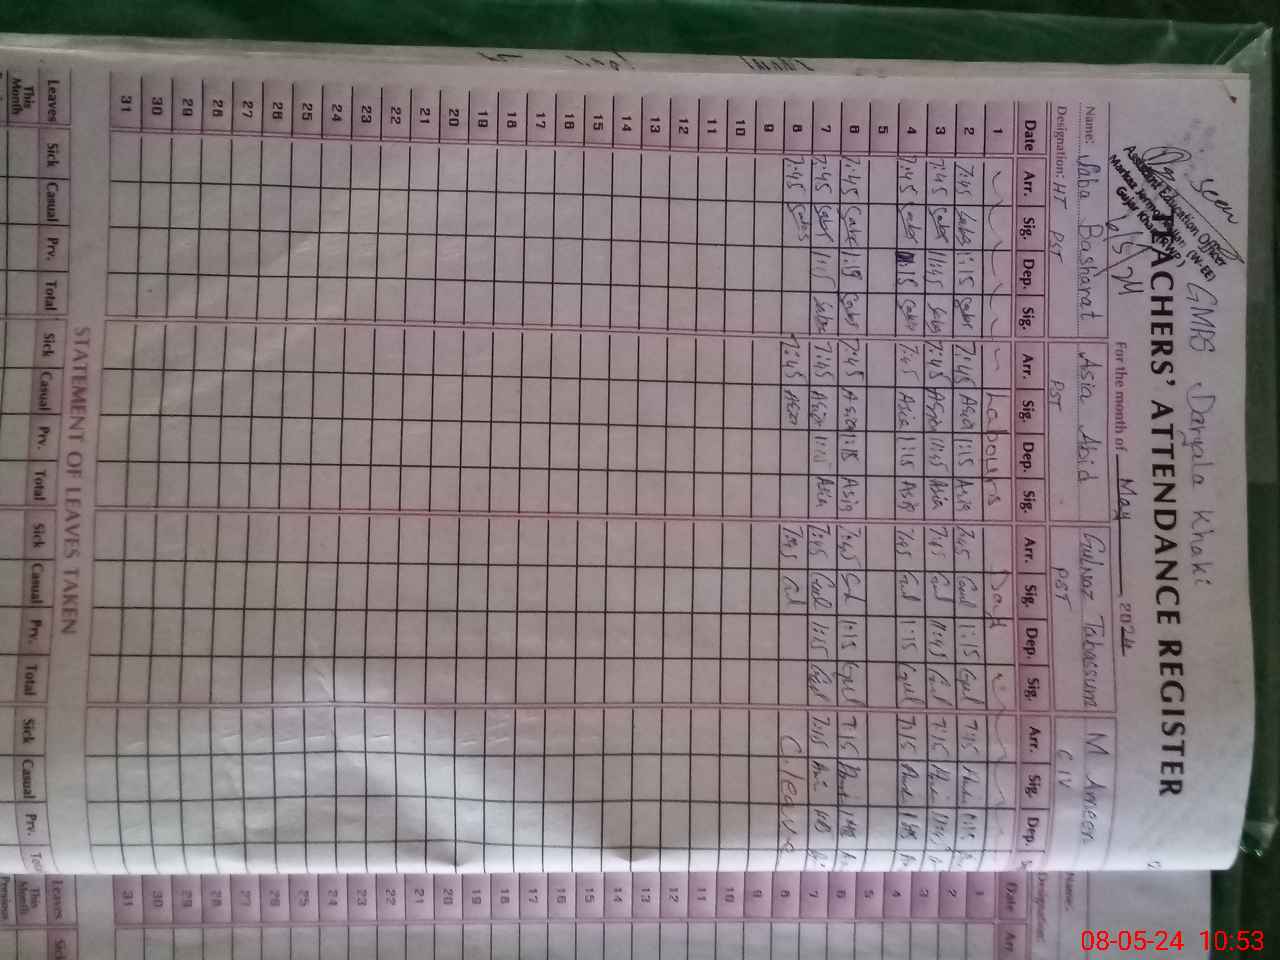 Seen
Assistant Education Officer
(W-EE)
GMPS Daryala Khaki
TEACHERS' ATTENDANCE REGISTER
For the month of May 2024
Name: Saba Basharat Asia Abid Gulnaz Tabassum M Ameen
Designation: HT PST PST PST C IV
Date Arr. Sig. Dep. Sig. Arr. Sig. Dep. Sig. Arr. Sig. Dep. Sig. Arr. Sig. Dep.
1 Labours Day
2 7:45 Saba 1:15 Saba 7:45 Asia 1:15 Asia 7:45 Gul 1:15 Gul
3 7:45 Saba 11:45 Saba 7:45 Asia 11:45 Asia 7:45 Gul 11:45 Gul 7:15
4 7:45 Saba 1:15 Saba 7:45 Asia 1:15 Asia 7:45 Gul 1:15 Gul 7:15
5
6 7:45 Saba 1:15 Saba 7:45 Asia 1:15 Asia 7:45 Gul 1:15 Gul 7:15
7 7:45 Saba 1:15 Saba 7:45 Asia 1:15 Asia 7:45 Gul 1:15 Gul 7:15
8 7:45 Saba 7:45 Asia 7:45 Gul C.leave
9
10
11
12
13
14
15
16
17
18
19
20
21
22
23
24
25
26
27
28
29
30
31
STATEMENT OF LEAVES TAKEN
Leaves Sick Casual Prv. Total Sick Casual Prv. Total Sick Casual Prv. Total Sick Casual Prv.
This Month
Name:
Designation:
Date Arr.
1
2
3
4
5
6
7
8
9
10
11
12
13
14
15
16
17
18
19
20
21
22
23
24
25
26
27
28
29
30
31
Leaves Sick
This Month
Previous
08-05-24 10:53